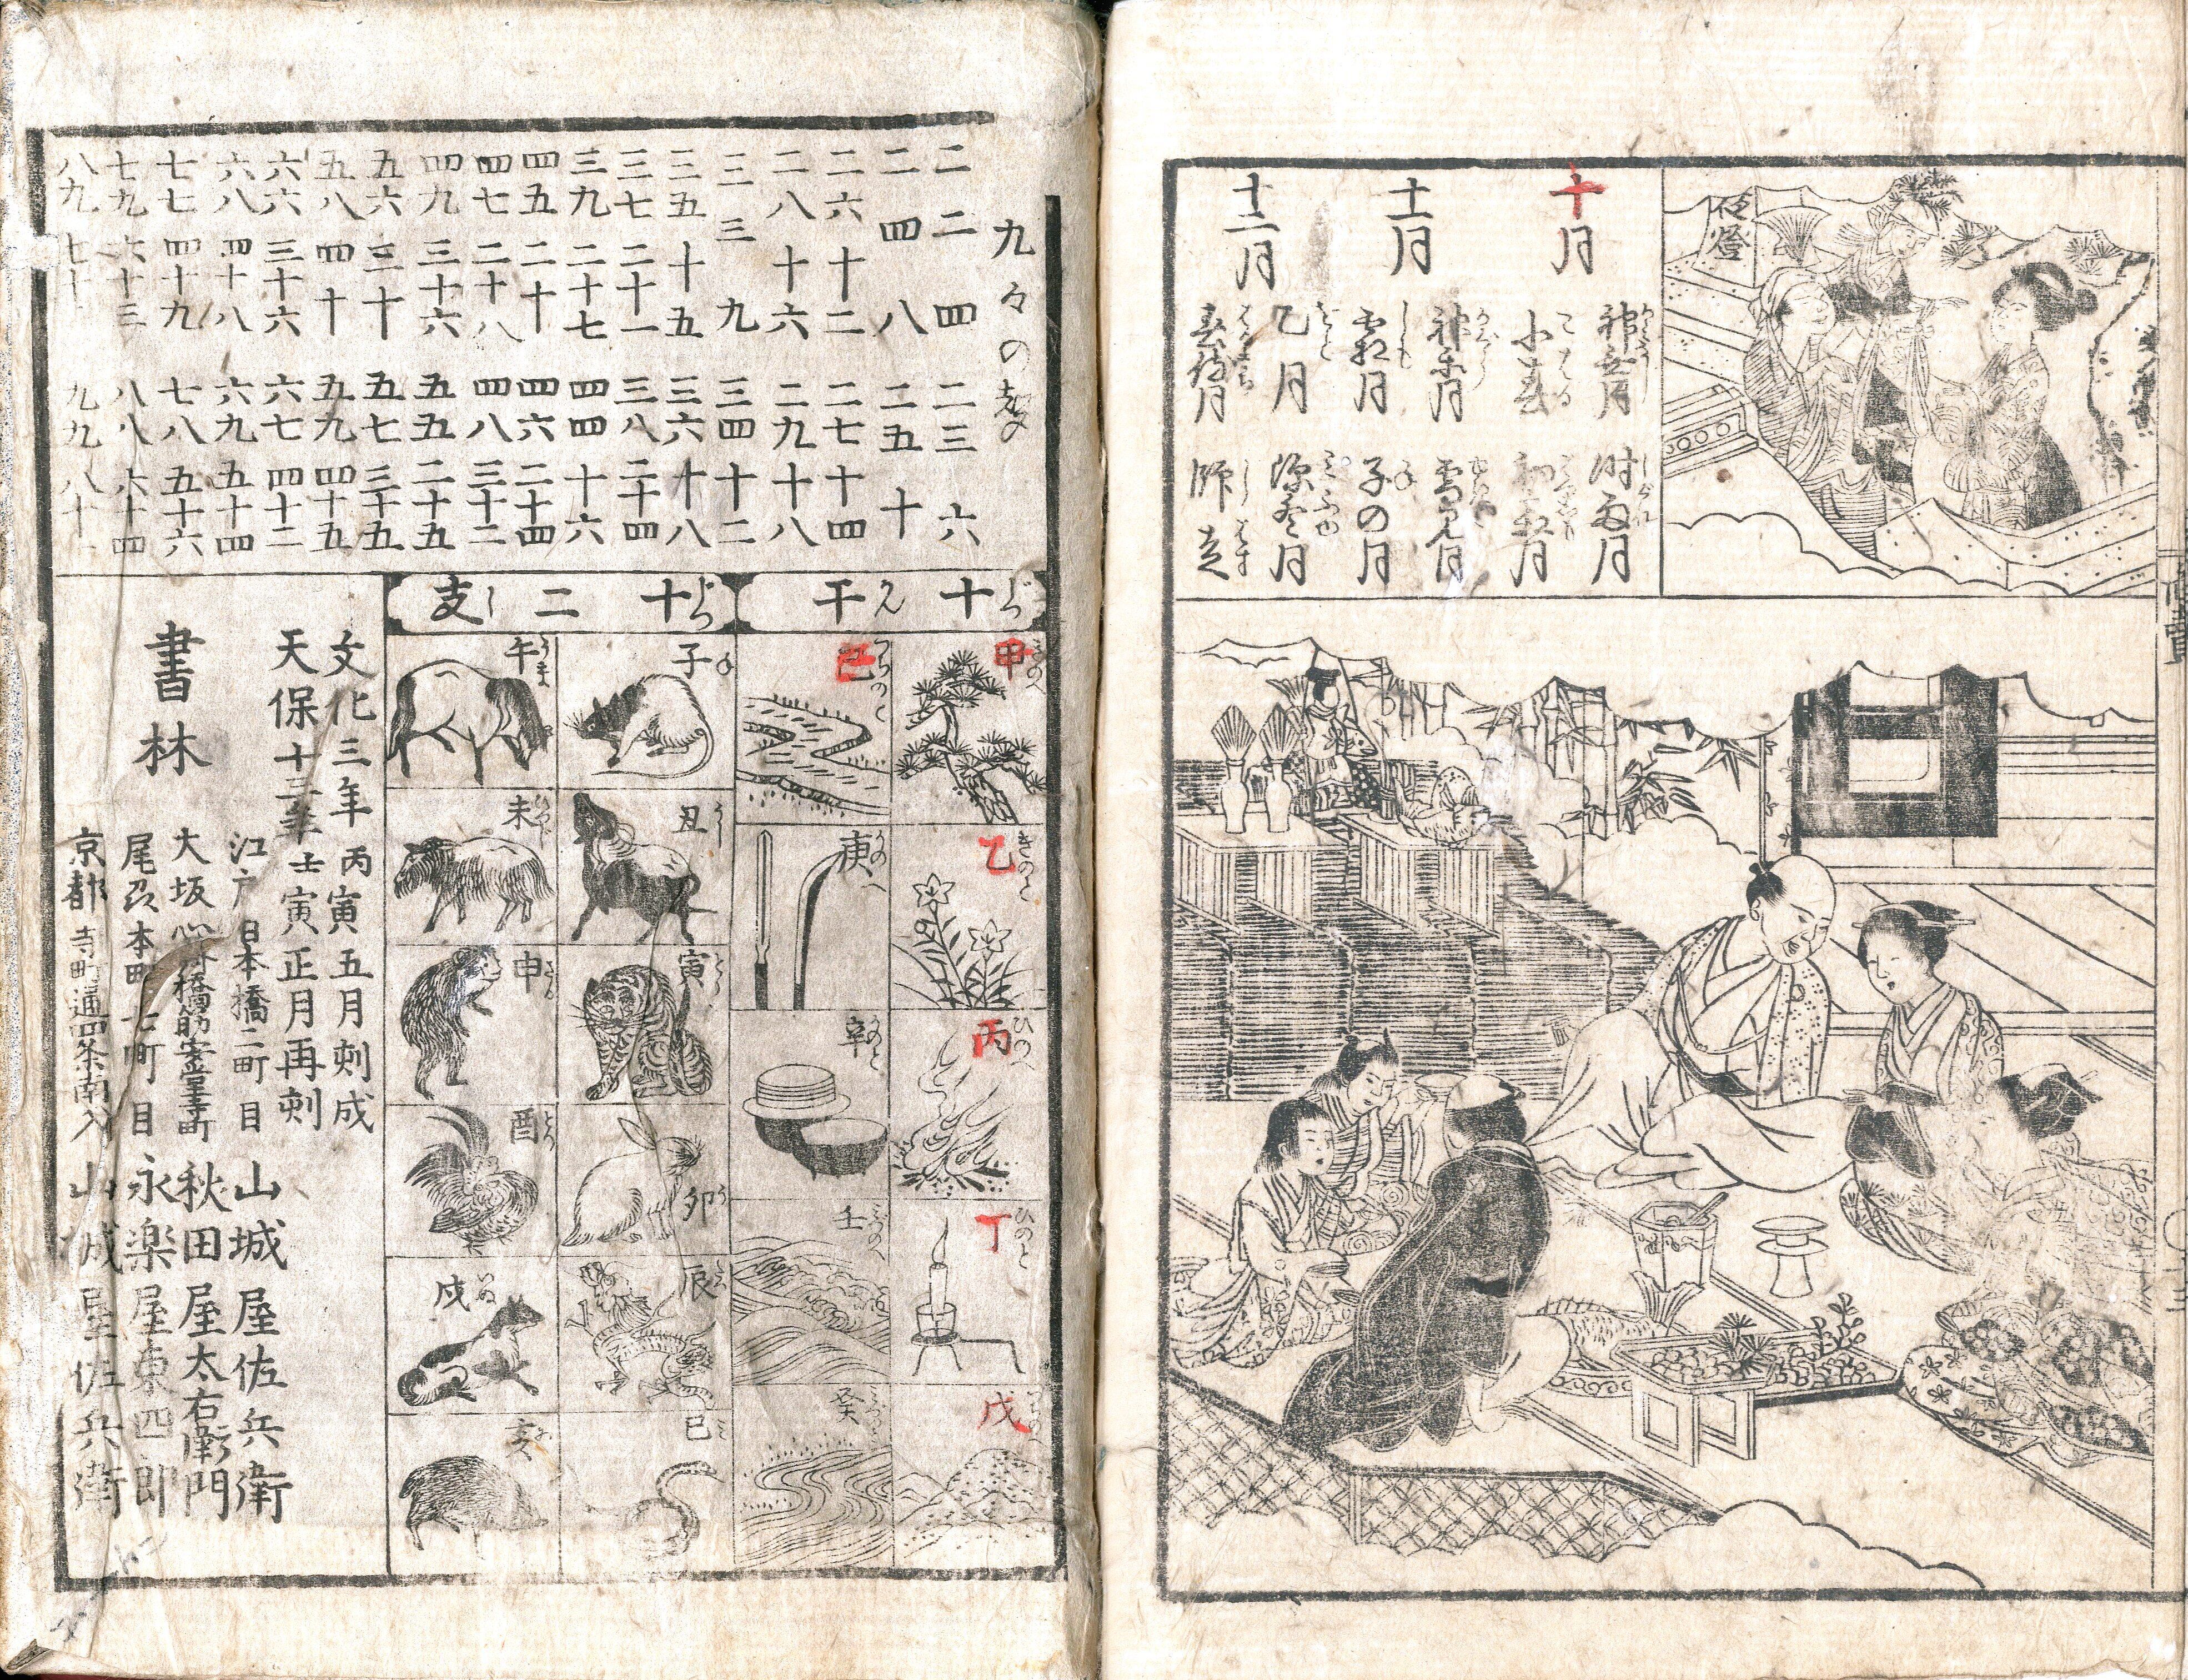 十月
神無月 時雨月
小春 初霜月
十一月
神楽月 雪見月
霜月 子の月
十二月
乙月 深冬月
春待月 師走
九々の声
二二四 二三六
二四八 二五十
二六十二 二七十四
二八十六 二九十八
三三九 三四十二
三五十五 三六十八
三七二十一 三八二十四
三九二十七 四四十六
四五二十 四六二十四
四七二十八 四八三十二
四九三十六 五五二十五
五六三十 五七三十五
五八四十 五九四十五
六六三十六 六七四十二
六八四十八 六九五十四
七七四十九 七八五十六
七九六十三 八八六十四
八九七十 九九八十一
十干
甲 きのへ
乙 きのと
丙 ひのへ
丁 ひのと
戊 つちのへ
己 つちのと
庚 かのへ
辛 かのと
壬 みづのへ
癸 みづのと
十二支
子 ね
丑 うし
寅 とら
卯 う
辰 たつ
巳 み
午 うま
未 ひつじ
申 さる
酉 とり
戌 いぬ
亥 ゐ
文化三年丙寅五月刻成
天保十三年壬寅正月再刻
書林
江戸日本橋二町目 山城屋佐兵衛
大坂心斎橋筋安堂寺町 秋田屋太右衛門
尾州本町七町目 永楽屋東四郎
京都寺町通四条南入 山城屋佐兵衛